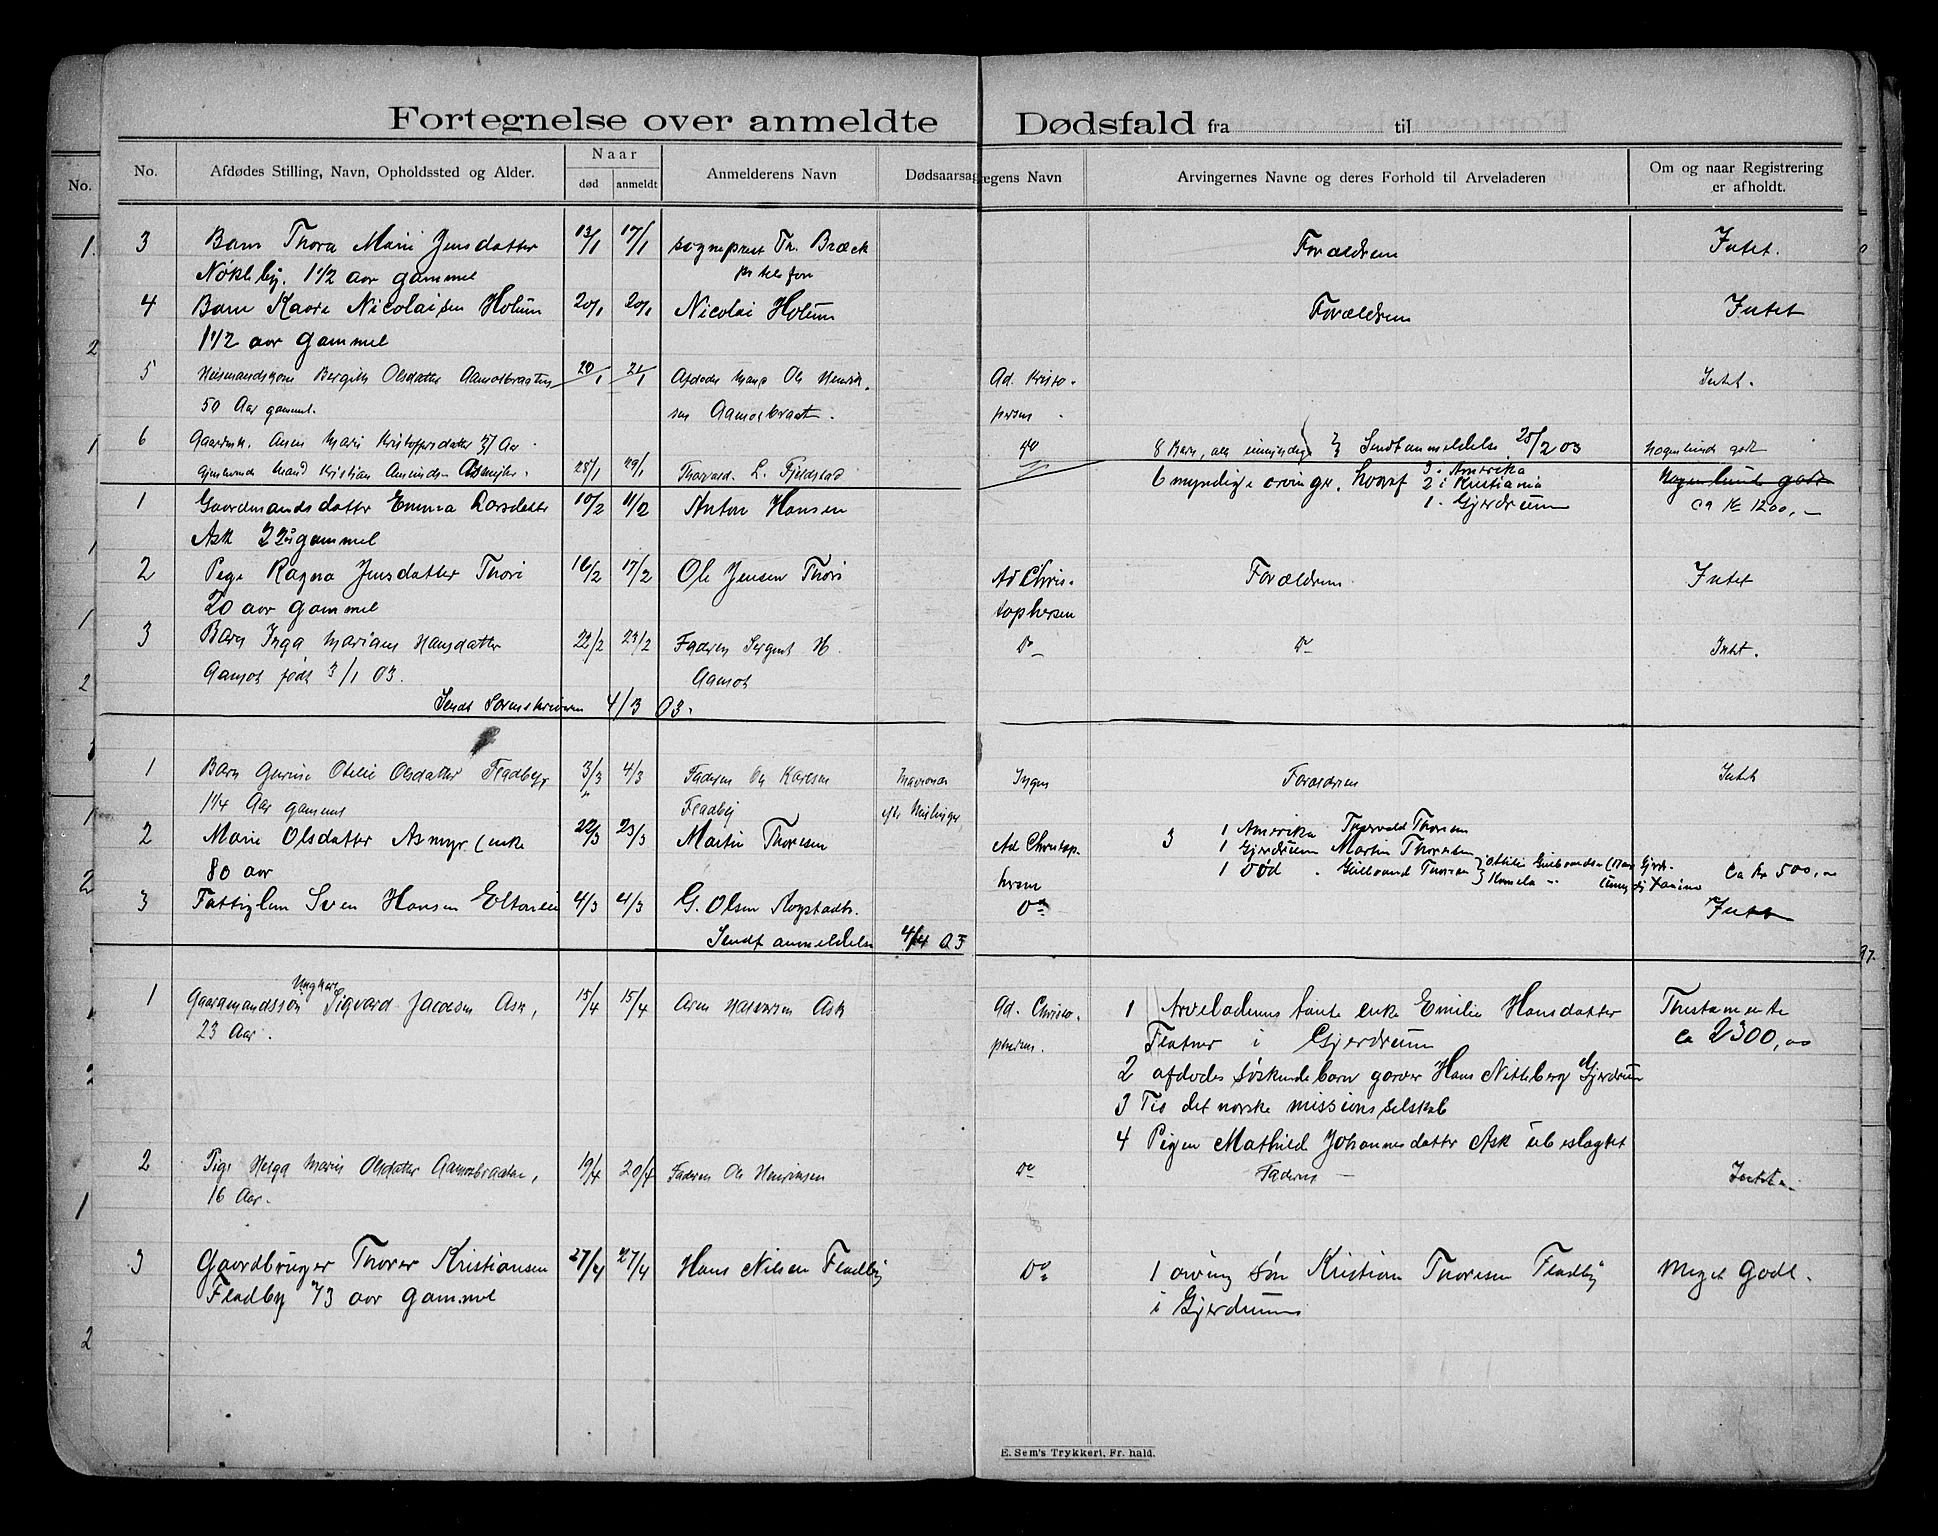 Fortegnelse over anmeldte Dødsfald fra til
No. Afdødes Stilling, Navn, Opholdssted og Alder. Naar død anmeldt Anmelderens Navn Dødsaarsag Lægens Navn Arvingernes Navne og deres Forhold til Arveladeren Om og naar Registrering er afholdt.
3 Barn Thora Marie Jensdatter 13/1 17/1 sogneprest Th. Bræck Forældrene Intet.
Nökleby. 1 1/2 aar gammel pr telefon
4 Barn Kaare Nicolaisen Holum 20/1 20/1 Nicolai Holum Forældrene Intet
1 1/2 aar gammel
5 Husmandskone Bergitte Olsdatter Aamodbraaten 20/1 21/1 Afdødes Mand Ole Henrik- Ad. Kristo- Intet.
50 Aar gammel. sen Aamodbraat. persen
6 Gaardmk. Anne Marie Kristoffersdatter 37 Aar do 8 Børn, alle umyndige Sendt anmeldelse 28/2 03 Nogenlunde godt
Kristian 28/1 29/1 Thorvard. L. Fjeldstad
1 Gaardmandsdatter Emma Larsdatter 10/2 11/2 Anton Hansen 6 myndige arvinger, hvoraf 3 i Amerika 2 i Kristiania 1 - Gjerdrum Nogenlunde godt ca Kr 1200,-
Ask 22 år gammel
2 Pige Ragna Jensdatter Thori 16/2 17/2 Ole Jensen Thori Ad Chris- Forældrene Intet
20 aar gammel tophersen
3 Barn Inga Mariane Hansdatter 22/2 23/2 Faderen Sergent H. Do Do Intet.
Aamot født 3/1 03. Aamot
Sendt Sorenskriveren 4/3 03.
1 Barn Gurine Otelie Olsdatter Fladby, 3/3 4/3 Faderen Ole Karlsen Ingen Forældrene Intet
1 1/4 Aar gammel Fladby efter Meslinger,
2 Marie Olsdatter Asmyr (enke 22/3 23/3 Martin Thoresen Ad Christop- 3 1 Amerika Thorvald Thoresen
1 Gjerdrum Martin Thoresen
80 aar hersen 1 død. Gulbrand Thoresen ca Kr 500,00
3 Fattiglem Sven Hansen 4/3 4/3 G. Olsen Rogstadb. Do Intet
Sendt anmeldelse 4/4 03
Ungkarl
1 Gaardmandssøn Sigvard Jacobsen Ask, 15/4 15/4 Aren Halvorsen Ask Ad. Christo- 1 Arveladerens tante enke Emilie Hansdatter Thestamente
23 Aar. phersen. Flatner i Gjerdrum ca 2300,00
2 afdødes søskendebarn Hans Nitteberg Gjerdrum
3 Til det norske missionsselskab
4 Pigen Mathild Johannesdatter Ask ubeslægtet
2 Pige Helga Marie Olsdatter Aamodbraaten, 19/4 20/4 Faderen Ole Henriksen Do Faderen Intet.
16 Aar.
3 Gaardbruger Thorer Kristiansen 27/4 27/4 Hans Nilsen Fladby Do 1 arving søn Kristian Thoresen Fladby Meget Godt.
Fladby 73 aar gammel i Gjerdrum
E. Sem's Trykkeri, Fr. hald.